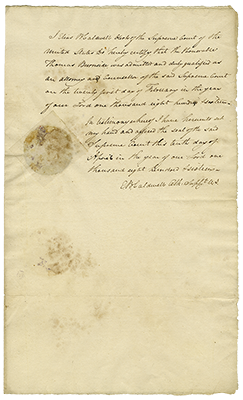 I Elias B Caldwell Clerk of the Supreme Court of the
United States Do hereby certify that the Honorable
Thomas Burnside was admitted and duly qualified as
an attorney and Counsellor of the said Supreme Court
on the twenty first day of February in the year
of our Lord one thousand eight hundred & sixteen
In testimony whereof I have hereunto set
my hand and affixed the seal of the said
Supreme Court this tenth day of
April in the year of our Lord one
thousand eight hundred & sixteen
E B Caldwell Clk Sup Ct US